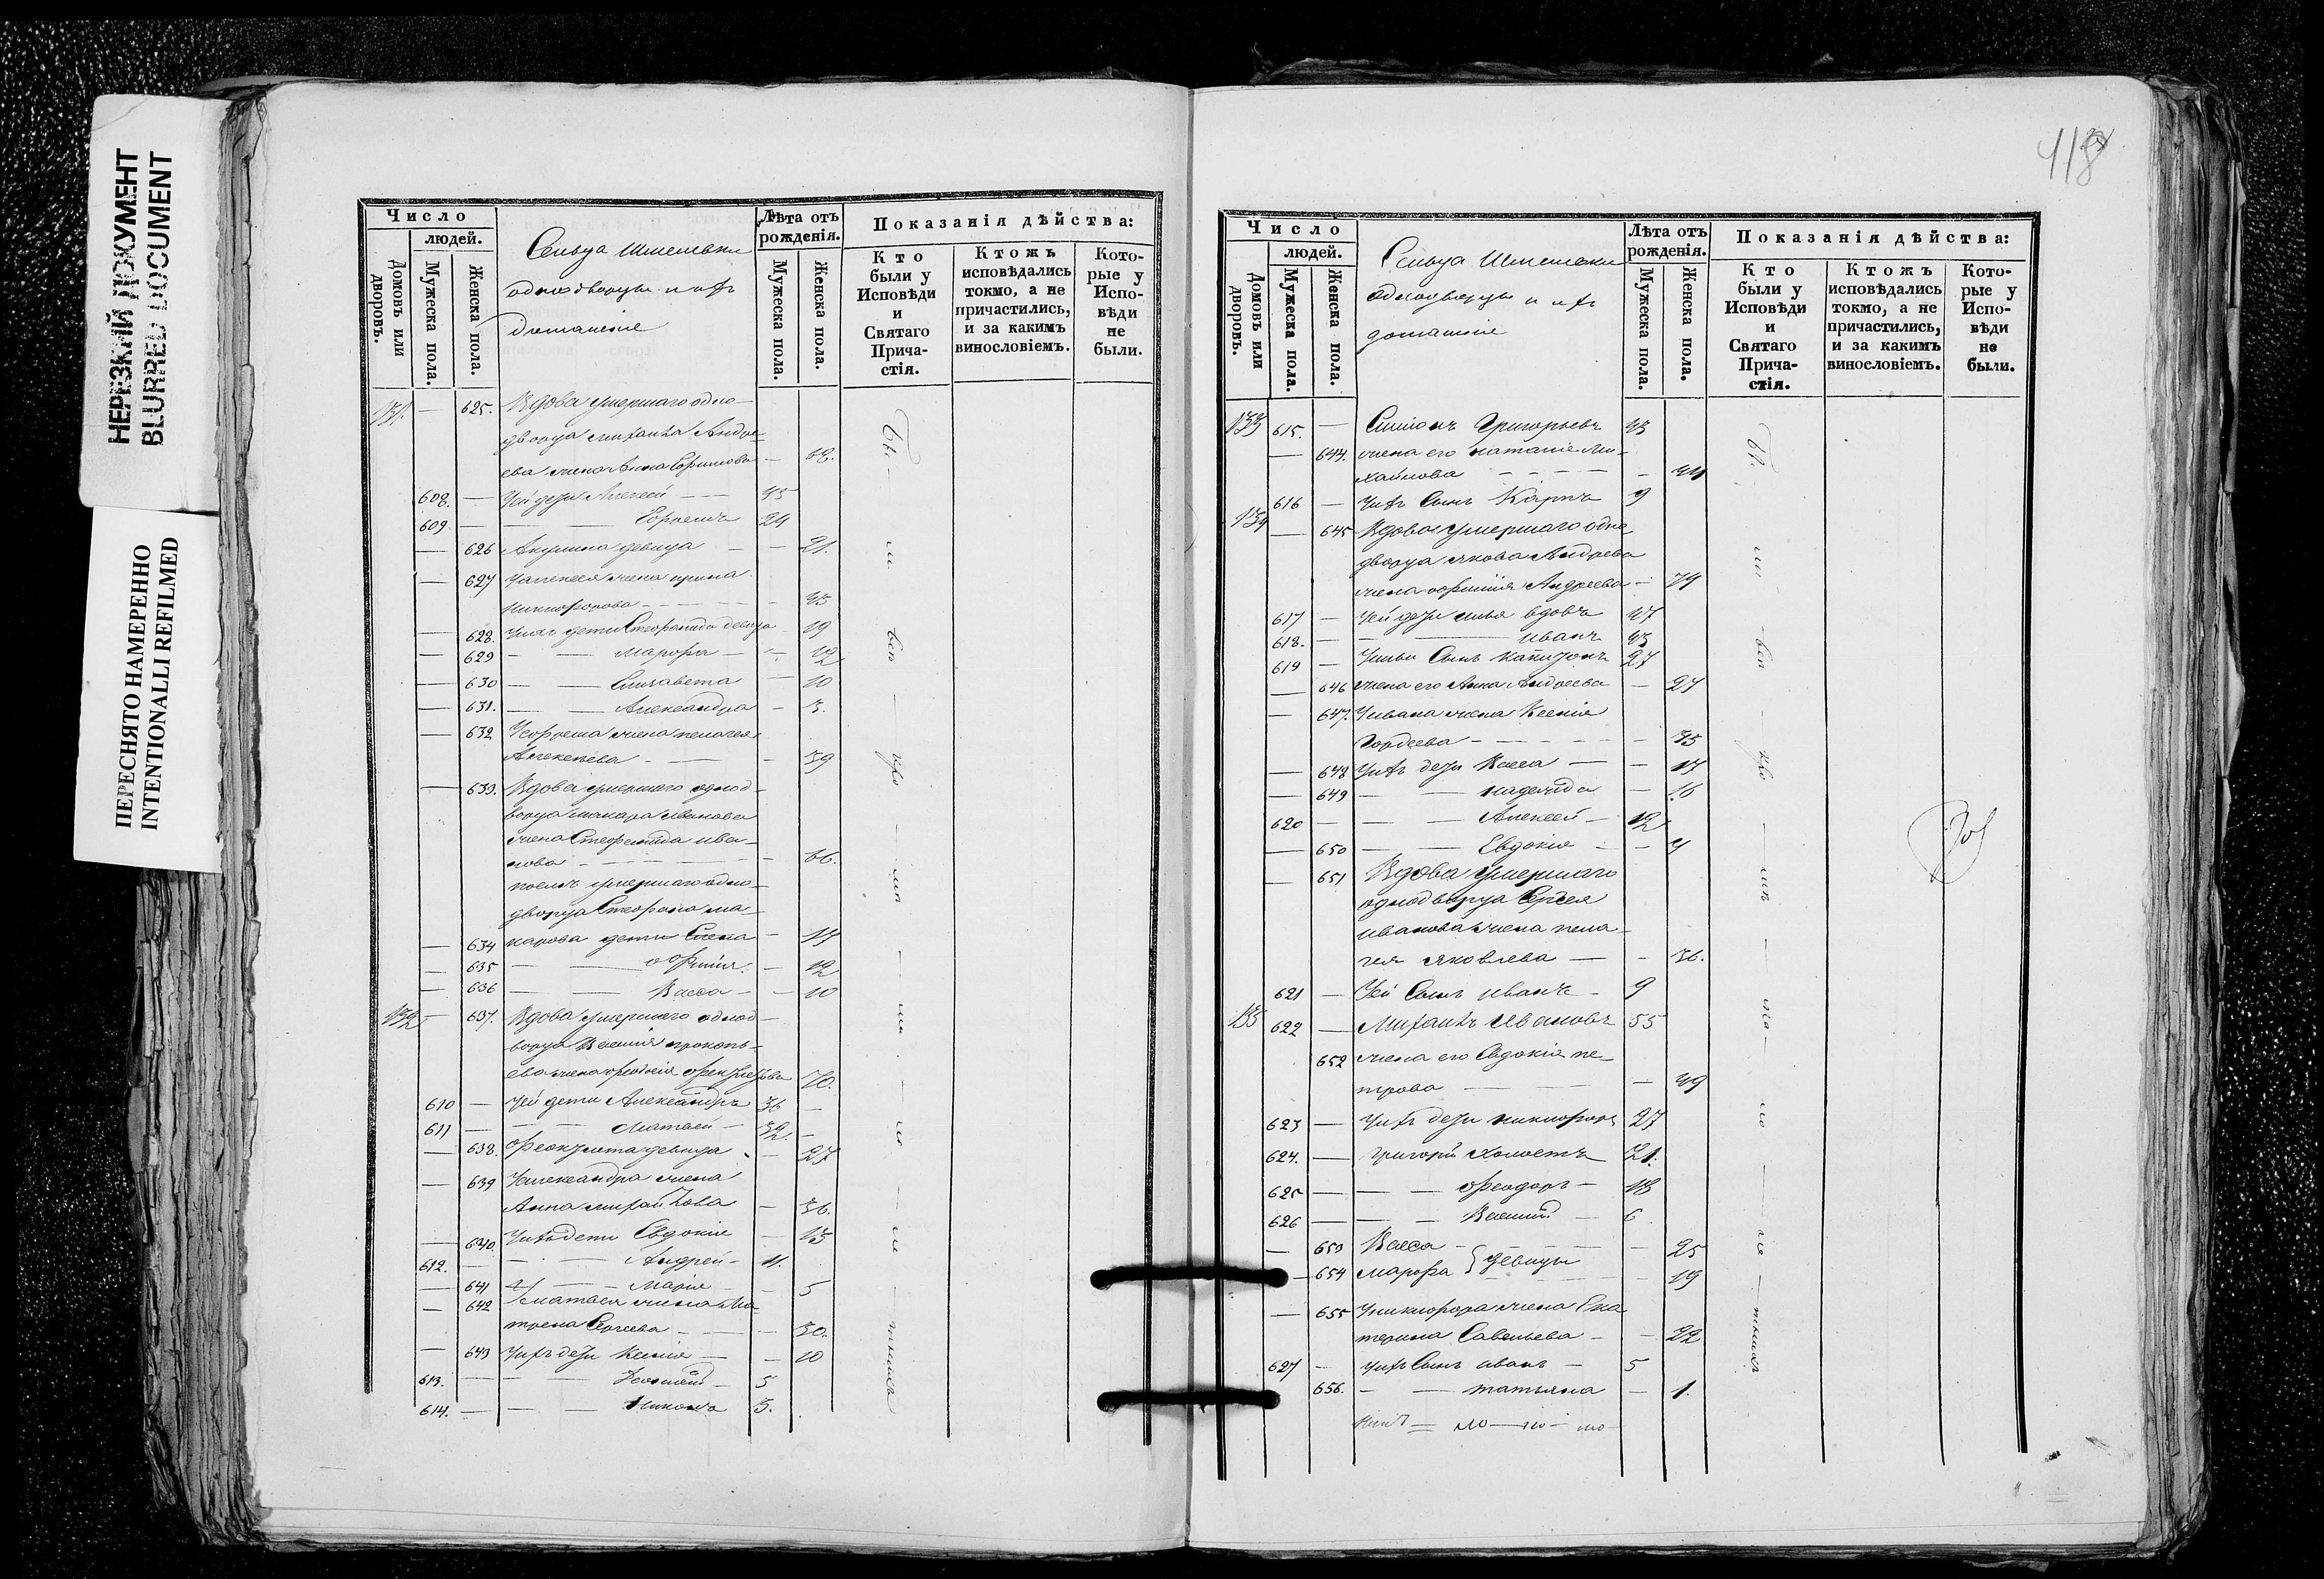 НЕРЕЗКИЙ ДОКУМЕНТ
BLURRED DOCUMENT
ПЕРЕСНЯТО НАМЕРЕННО
INTENTIONALLI REFILMED
418
Число
людей.
Домовъ или дворовъ.
Мужеска пола.
Женска пола.
Сельца Шмелевки
однодворцы и ихъ
домашніе
Лѣта отъ рожденія.
Мужеска пола.
Женска пола.
Показанія дѣйства:
Кто были у Исповѣди и Святаго Прича-стія.
Ктожъ исповѣдались токмо, а не причастились, и за какимъ винословіемъ.
Кото-рые у Испо-вѣди не были.
131. — 625. Вдова умершаго одно-
дворца Михаила Андре-
ева жена Анна Ефимова — 68.
608. — Ея дети Алексей — 45
609 — — Ефремъ 24
— 626 Акулина девица — 21.
— 627 У Алексея жена Ирина
Никифорова — 45
— 628. У ихъ дети Стефанида девица 19
— 629 — Марфа — 12
— 630 — Елизавета — 10
— 631. — Александра — 3.
— 632 У Ефрема жена Пелагея
Алексеева — 39
— 633. Вдова умершаго однод-
ворца Макара Иванова
жена Стефанида Ива-
нова — 66.
После умершаго одно-
дворца Стефана Ма-
— 634 карова дети Елена — 17
— 635 — Офимія — 12
— 636 — Васса — 10
132 — 637. Вдова умершаго однод-
ворца Василія Прокопь-
ева жена 70.
610 — Ея дети Александръ 36
611 — Матвей — 32.
— 638. Феоктиста девица — 27
— 639 У Александра жена
Анна Михайлова — 36.
— 640. У ихъ дети Евдокія — 15
612. — Андрей — 11.
— 641 — Марія — 5
— 642 У Матвея жена Ма
трена Сергеева — 30.
— 643 У ихъ дети Ксенія — 10
613. — 5
614. — Никола 3.
Бы — ли — вси — кро — ме — ма — ло — ле — тныхъ
Число
людей.
Домовъ или дворовъ.
Мужеска пола.
Женска пола.
Сельца Шмелевки
однодворцы и ихъ
домашніе
Лѣта отъ рожденія.
Мужеска пола.
Женска пола.
Показанія дѣйства:
Кто были у Исповѣди и Святаго Прича-стія.
Ктожъ исповѣдались токмо, а не причастились, и за какимъ винословіемъ.
Кото-рые у Испо-вѣди не были.
133 615. — Симіонъ Григорьевъ 43
— 644. жена его Наталіе Ми-
хайлова — 44
616 — У ихъ сынъ Карпъ 9
134 — 645 Вдова умершаго одно
дворца Якова Андреева
жена Офимія Андреева — 79
617 — Ея дети Илья вдовъ 47
618. — Иванъ 43
619 — У Ильи сынъ Капитонъ 27
— 646 жена его Анна Андреева — 27
— 647. У Ивана жена Ксенія
Гордеева — 35
— 648 У ихъ дети Васса — 17
— 649 — Надежда — 16
620 — Алексей — 12
— 650 — Евдокія — 4
— 651 Вдова умершаго
однодворца Сергея
Иванова жена Пела-
гея Яковлева — 36.
621 — Ея сынъ Иванъ — 9
135 622 — Михаилъ Ивановъ 55
652 жена его Евдокія Пе-
трова — 49
623 — У ихъ дети Никифоръ 27
624. — Григорій холостъ 21.
625 — Феодоръ — 18
626 — Василій — 6
— 653 Васса — 25
— 654 Марфа } девицы — 19
— 655 У Никифора жена Ека
терина Савельева — 22
627 — У ихъ сынъ Иванъ — 5
656. — Татьяна — 1.
Бы — ли — вси — кро — мѣ — ма — ло — ле — тныхъ